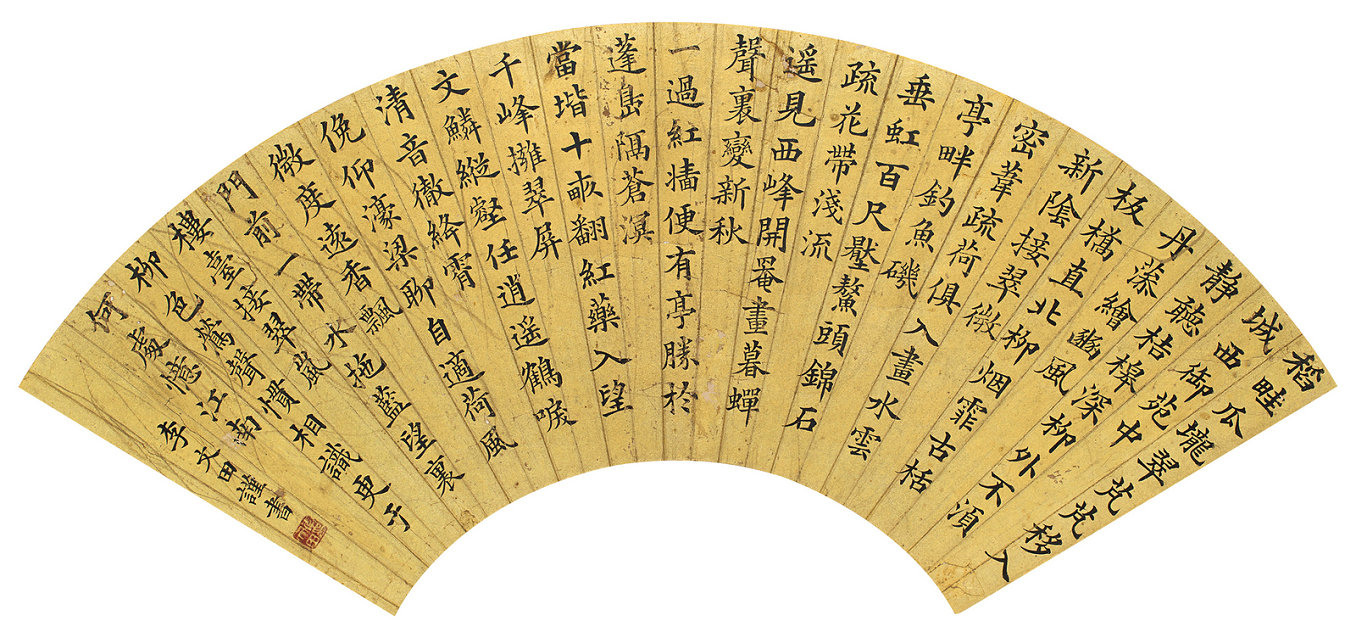 稻畦瓜壠翠芃芃移入
城西御苑中
靜聽桔槔深柳外不須
丹藻繪豳風
板橋直北柳烟霏古栝
新陰接翠微
密葦疏荷俱入畫水雲
亭畔釣魚磯
垂虹百尺壓鰲頭錦石
疏花帶淺流
遥見西峰開罨畫暮蟬
聲裏變新秋
一過紅墻便有亭勝於
蓬島隔蒼溟
當堦十畝翻紅藥入望
千峰擁翠屏
文鱗縱壑任逍遥鶴唳
清音徹絳霄
俛仰濠梁聊自適荷風
微度遠香飄
門前一帶水拖藍望裏
樓臺接翠嵐
柳色鶯聲慣相識更于
何處憶江南
李文田謹書